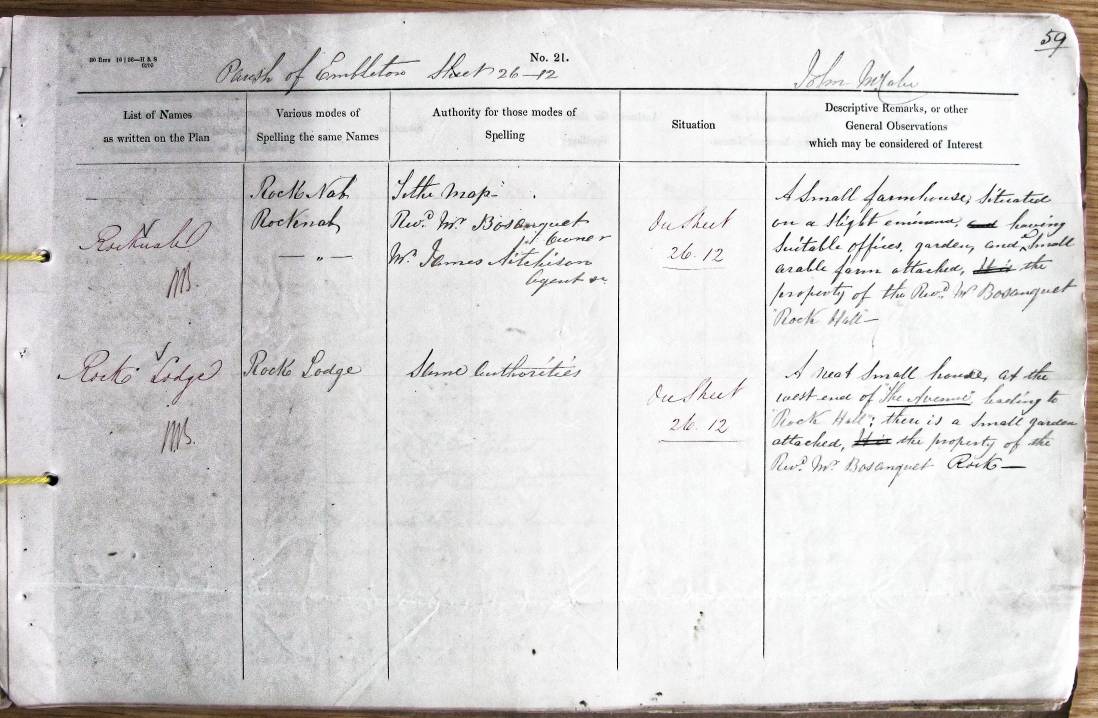 59
No. 21.
Parish of Embleton Sheet 26-12
John
List of Names
as written on the Plan
Various modes of
Spelling the same Names
Authority for those modes of
Spelling
Situation
Descriptive Remarks, or other
General Observations
which may be considered of Interest
Rocknab
MB.
Rock Nab
Rocknab
— " —
Tithe Map
Revd. Mr. Bosanquet
Owner
Mr. James Aitchison
Agent
On Sheet
26.12
A Small farmhouse, Situated
on a slight eminence, and having
Suitable offices, garden, and Small
arable farm attached, It is the
property of the Revd. Mr Bosanquet
"Rock Hall"—
Rock Lodge
MB.
Rock Lodge
Same Authorities
On Sheet
26.12
A neat Small house, at the
west end of "The Avenue" leading to
"Rock Hall"; there is a Small garden
attached, It is the property of the
Revd. Mr. Bosanquet Rock—